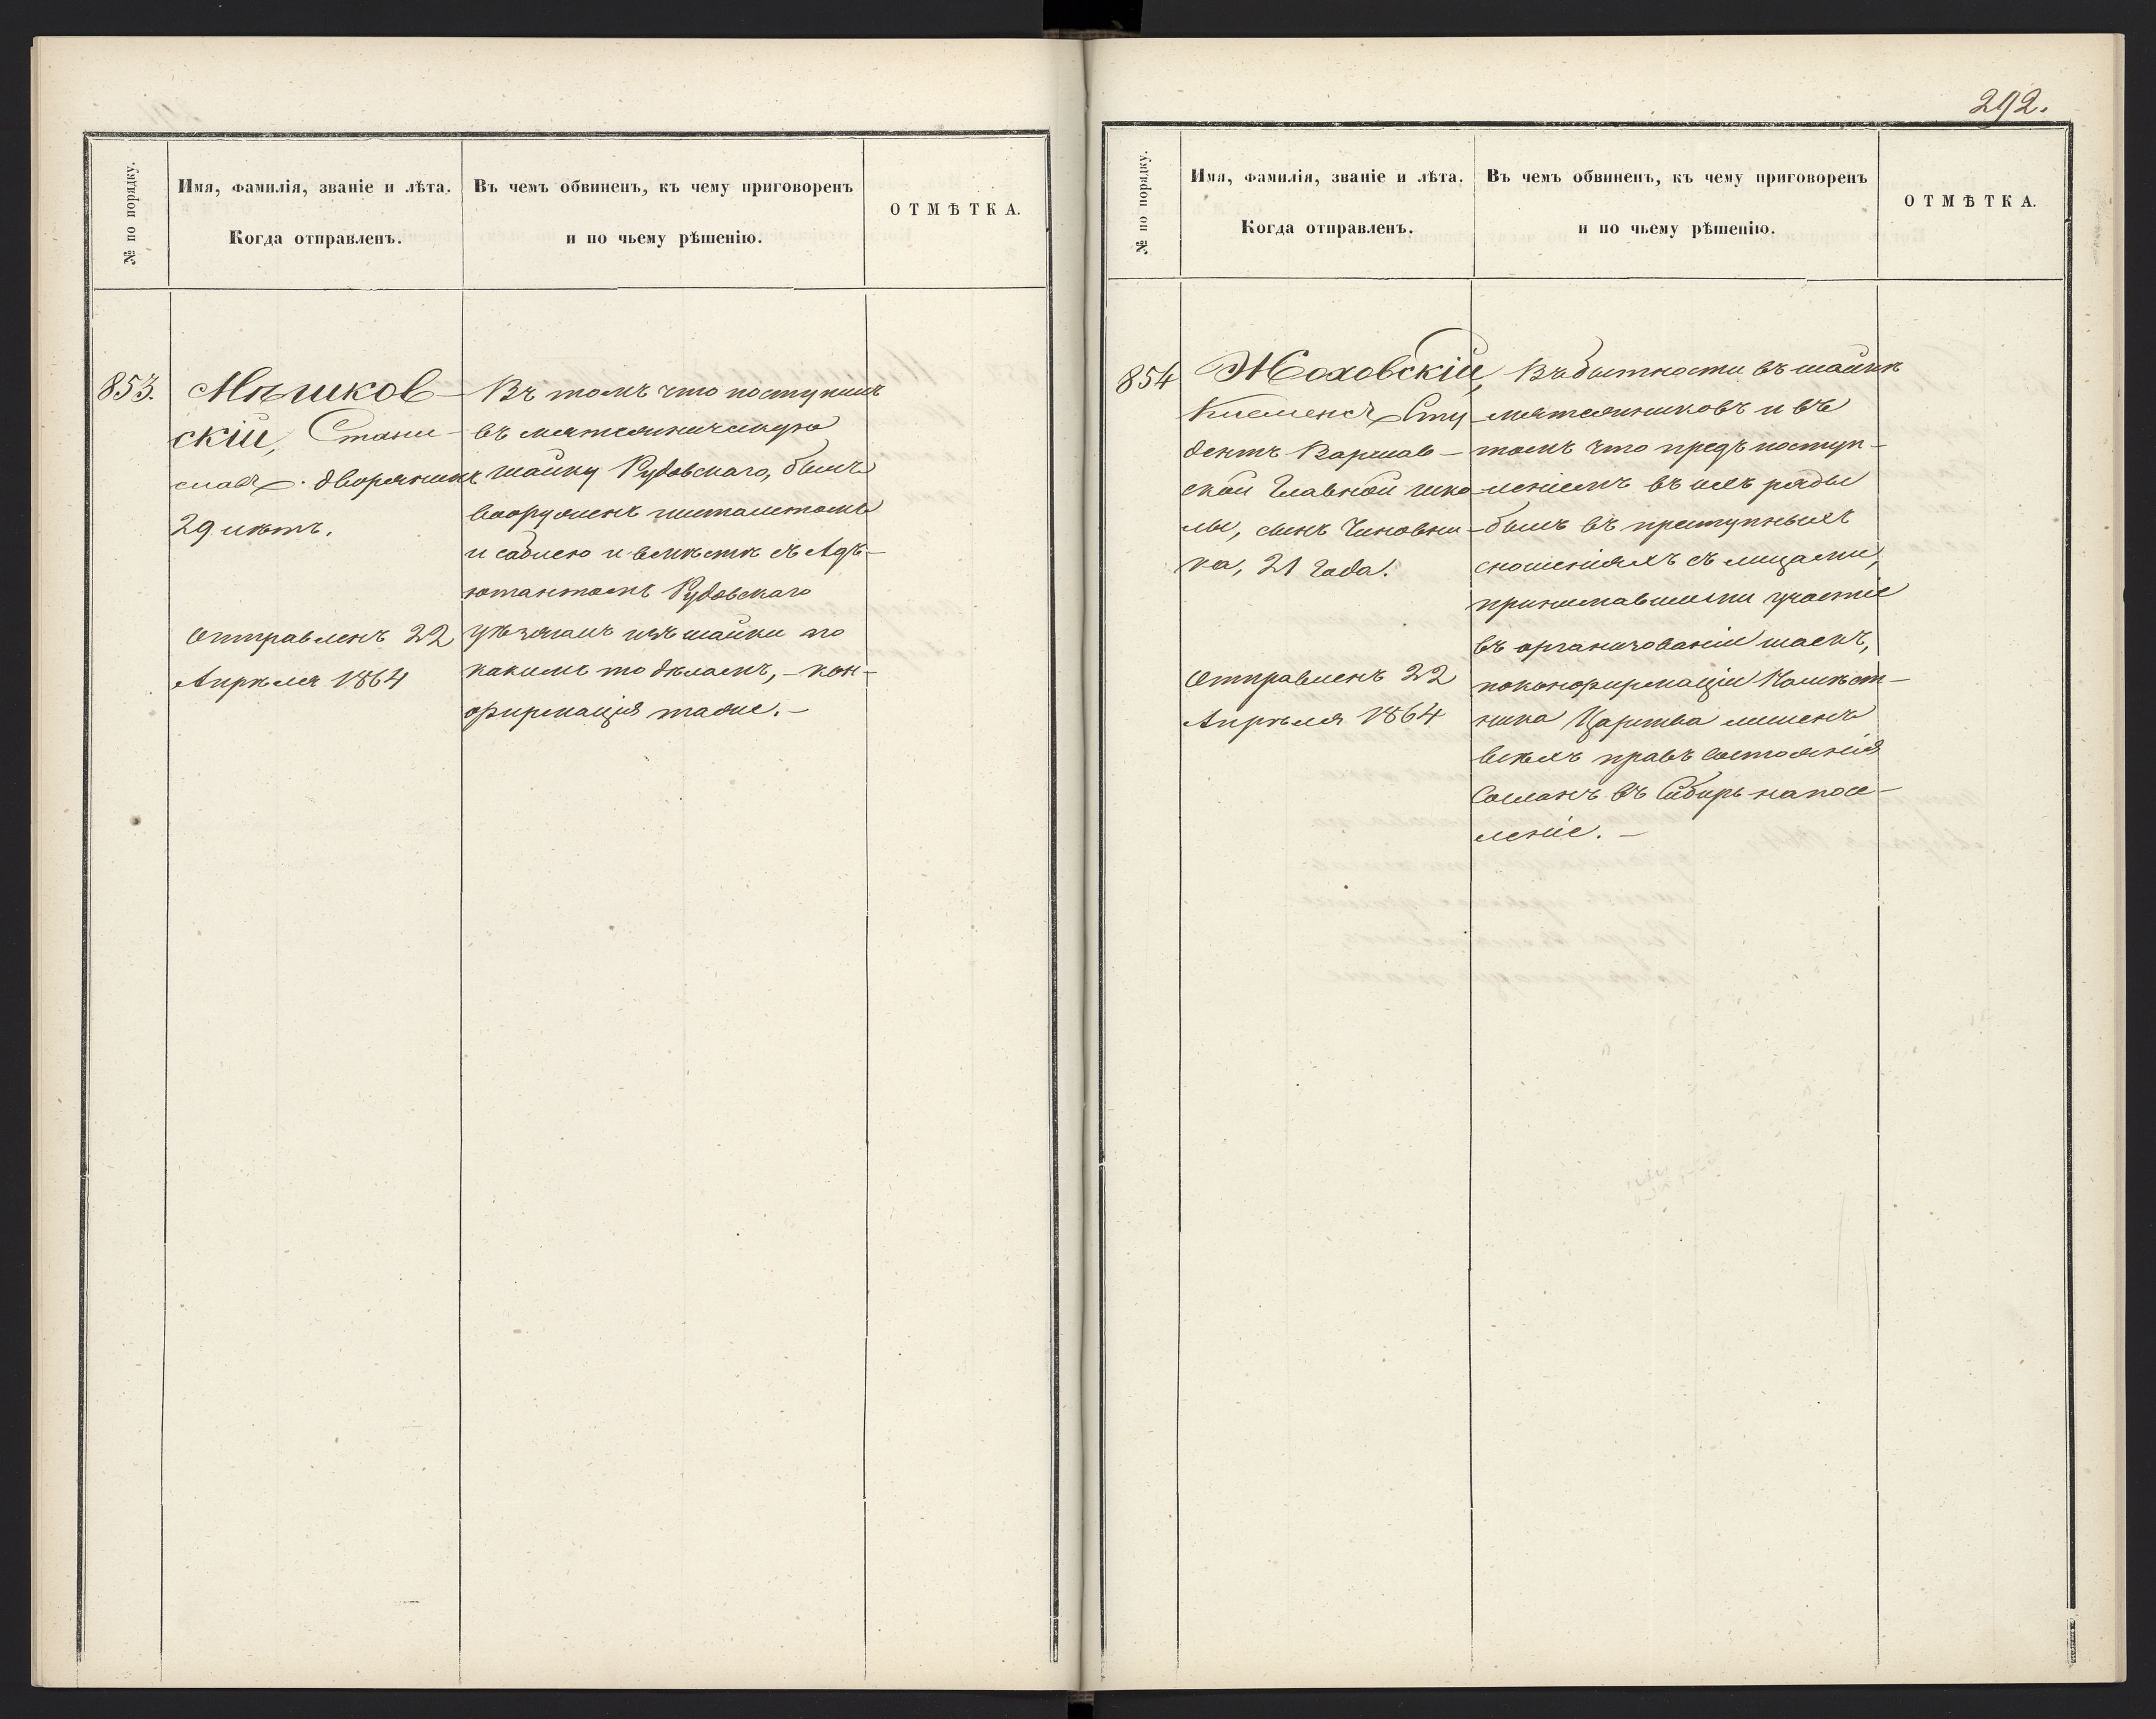 № по порядку.
Имя, фамилія, званіе и лѣта.
Когда отправленъ.
Въ чемъ обвиненъ, къ чему приговоренъ
и по чьему рѣшенію.
ОТМѢТКА.
853.
Мѣшков-
скій, Стани-
славъ. дворянинъ
29 лѣтъ.
Отправленъ 22
Апрѣля 1864
Въ томъ что поступивъ
въ мятежническую
шайку Рудовскаго, былъ
вооруженъ пистолетомъ
и саблею и вмѣстѣ съ Адъ-
ютантомъ Рудовскаго
уѣзжалъ изъ шайки по
какимъ то дѣламъ, - кон-
фирмація таже. -
292.
№ по порядку.
Имя, фамилія, званіе и лѣта.
Когда отправленъ.
Въ чемъ обвиненъ, къ чему приговоренъ
и по чьему рѣшенію.
ОТМѢТКА.
854
Жоховскій,
Клеменсъ Сту-
дентъ Варшав-
ской Главной шко-
лы, сынъ Чиновни-
ка, 21 года.
Отправленъ 22
Апрѣля 1864
Въ бытности въ шайкѣ
мятежниковъ и въ
томъ что предъ поступ-
леніемъ въ ихъ ряды
былъ въ преступныхъ
сношеніяхъ съ лицами,
принимавшими участіе
въ организованіи шаекъ,
по конфирмаціи Намѣст-
ника Царства лишенъ
всѣхъ правъ состоянія
Сосланъ въ Сибирь на посе-
леніе. -